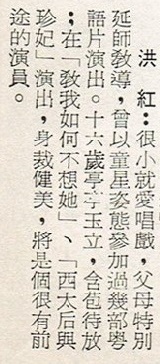 洪紅：很小就愛唱戲，父母特別
延師敎導，曾以童星姿態參加過幾部粵
語片演出。十六歲亭亭玉立，含苞待放
；在「敎我如何不想她」、「西太后與
珍妃」演出，身裁健美，將是個很有前
途的演員。